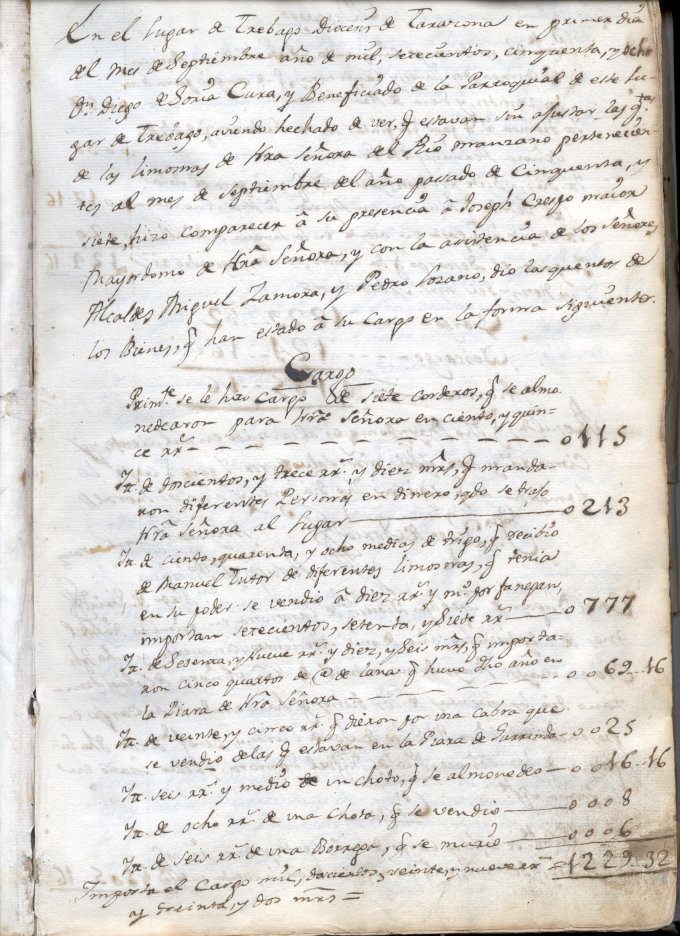 En el Lugar de Trebago diocess de Tarazona en primer dia
del mes de Septiembre año de mil, setecientos, cinquenta, y ocho
Dn. Diego de Soria Cura, y Beneficiado de la Parroquial de este Lu-
gar de Trebago, aviendo hechado de ver, q̃ estavan sin ajustar las qtas
de las limosnas de Nra Señora del Rio manzano pertenecien-
tes al mes de septiembre del año passado de Cinquenta, y
siete, hizo comparecer â su presencia â Joseph Crespo maior
Mayordomo de Nrã Señora, y con la asistencia de los señores
Alcaldes Miguel Zamora, y Pedro Lozano, dio las quentas de
los Bienes, q̃ han estado â su Cargo en la forma siguiente.
Cargo
Primte. se le hizo Cargo de siete corderos, q̃ se almo
nedearon para Nrã Señora en ciento, y quin-
ce rr.s — 0115
Ytt. de doscientos, y trece rr.s y diez mrs, q̃ manda-
ron diferentes Personas en dinero, qdo se trajo
Nrã Señora al Lugar — 0213
Ytt. de ciento, quarenta, y ocho medias de trigo, q̃ recibio
de Manuel Tutor de diferentes limosnas, q̃ tenia
en su poder se vendio â diez rr.s y mo. por fanegan,
importan setecientos, setenta, y siete rr.s — 0777
Ytt. de Sesenta, y nueve rr.s y diez, y seis mrs, q̃ importa-
ron cinco quartos de @ de lana q̃ huvo dho año en
la Piara de Nrã Señora — 0069..16
Ytt. de veinte, y cinco rr.s q̃ dieron por una cabra que
se vendio de las q̃ estavan en la Piara de — 0025
Ytt. seis rr.s y medio de un choto, q̃ se almonedeo — 0016..16
Ytt. de ocho rr.s de una Chota, q̃ se vendio — 0008
Ytt. de seis rr.s de una Borrega, q̃ se murio — 0006
Importa el Cargo mil, doscientos, veinte, y nueve rr.s = 1229..32
y treinta, y dos mrs =